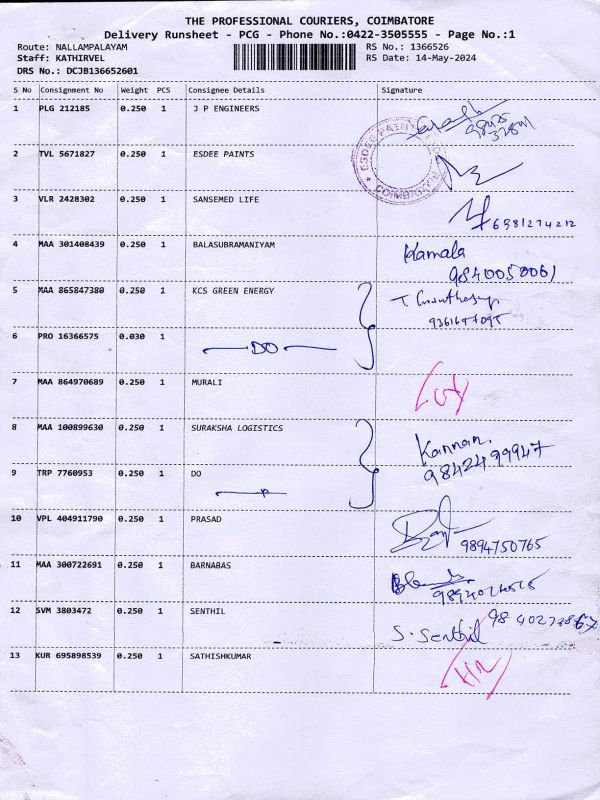 THE PROFESSIONAL COURIERS, COIMBATORE
Delivery Runsheet - PCG - Phone No.:0422-3505555 - Page No.:1
Route: NALLAMPALAYAM
Staff: KATHIRVEL
DRS No.: DCJB136652601
RS No.: 1366526
RS Date: 14-May-2024
S No Consignment No Weight PCS Consignee Details Signature
1 PLG 212185 0.250 1 J P ENGINEERS
2 TVL 5671827 0.250 1 ESDEE PAINTS
ESDEE PAINT
COIMBATORE
3 VLR 2428302 0.250 1 SANSEMED LIFE 6381274212
4 MAA 301408439 0.250 1 BALASUBRAMANIYAM Kamala
9840050061
5 MAA 865847380 0.250 1 KCS GREEN ENERGY
6 PRO 16366575 0.030 1 DO
7 MAA 864970689 0.250 1 MURALI
8 MAA 100899630 0.250 1 SURAKSHA LOGISTICS Kannan.
9842499947
9 TRP 7760953 0.250 1 DO
10 VPL 404911790 0.250 1 PRASAD 9894750765
11 MAA 300722691 0.250 1 BARNABAS
12 SVM 3803472 0.250 1 SENTHIL S. Senthil
13 KUR 695898539 0.250 1 SATHISHKUMAR